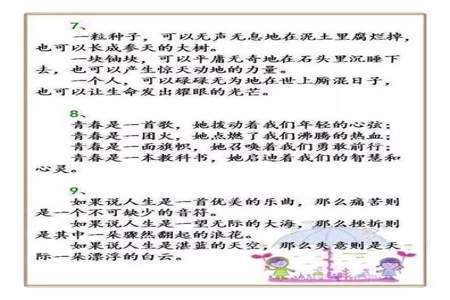 7、
一粒种子，可以无声无息地在泥土里腐烂掉，
也可以长成参天的大树。
一块铀块，可以平庸无奇地在石头里沉睡下
去，也可以产生惊天动地的力量。
一个人，可以碌碌无为地在世上厮混日子，
也可以让生命发出耀眼的光芒。
8、
青春是一首歌，她拨动着我们年轻的心弦；
青春是一团火，她点燃了我们沸腾的热血；
青春是一面旗帜，她召唤着我们勇敢前行；
青春是一本教科书，她启迪着我们的智慧和
心灵。
9、
如果说人生是一首优美的乐曲，那么痛苦则
是一个不可缺少的音符。
如果说人生是一望无际的大海，那么挫折则
是其中一朵骤然翻起的浪花。
如果说人生是湛蓝的天空，那么失意则是天
际一朵漂浮的白云。